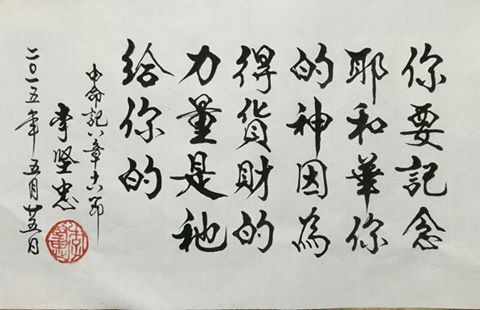 你要記念
耶和華你
的神因為
得貨財的
力量是祂
給你的
申命記八章十八節
李堅忠
二〇一五年五月廿五日